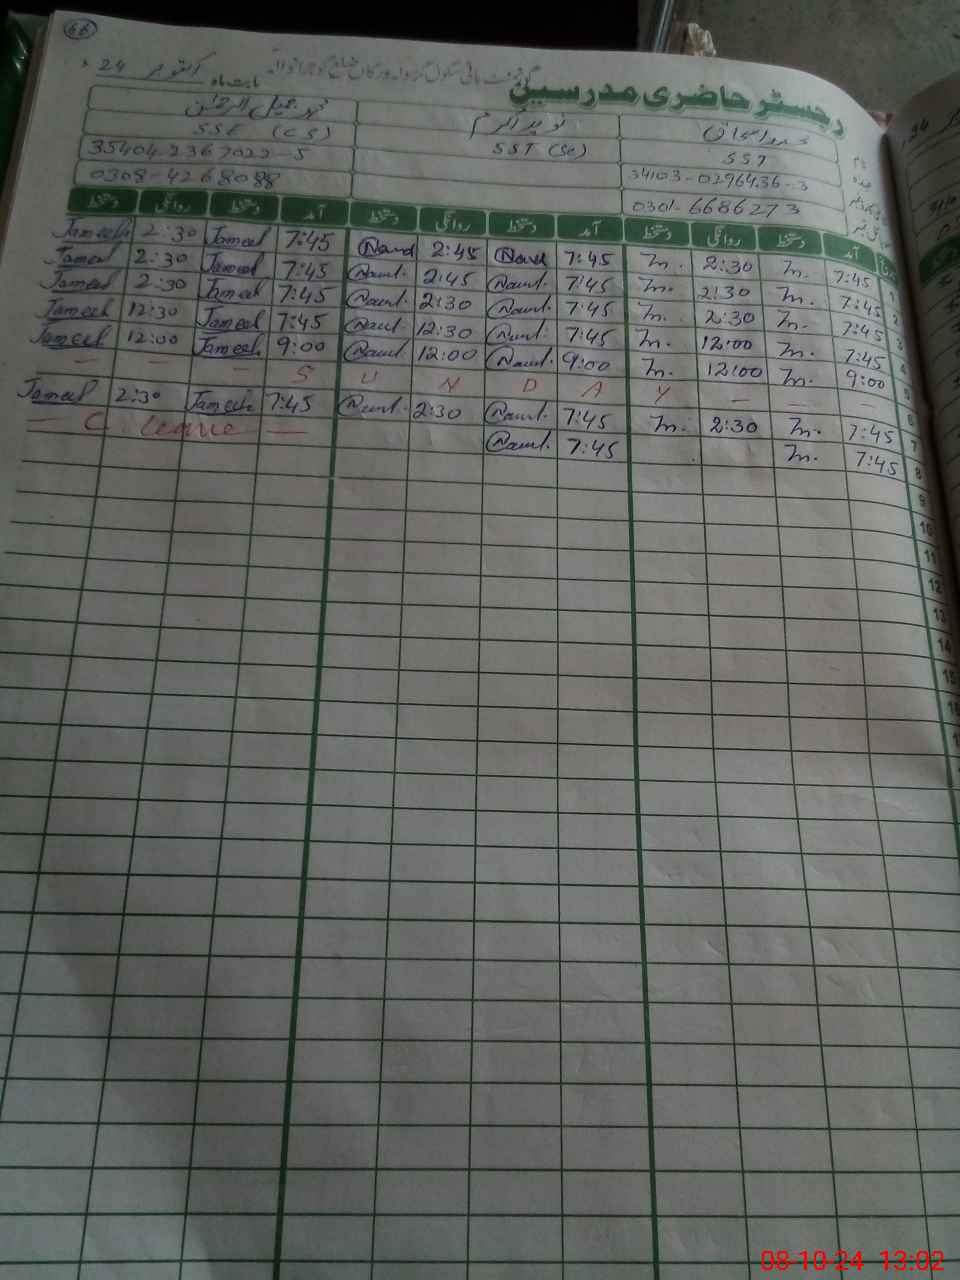 66
گورنمنٹ ہائی سکول گرمولہ ورکاں ضلع گوجرانوالہ
رجسٹر حاضری مدرسین
بابت ماہ اکتوبر 24
نام محمد اسحاق نوید اکرم محمد جمیل الرحمٰن
عہدہ SST SST (Sc) SSE (CS)
34103-0296436-3 35404-2367022-5
0301-6686273 0308-4268088
آمد دستخط روانگی دستخط آمد دستخط روانگی دستخط آمد دستخط روانگی دستخط
1 7:45 m. 2:30 m. 7:45 Naveed 2:45 Naveed 7:45 Jameel 2:30 Jameel
2 7:45 m. 2:30 m. 7:45 Naveed 2:45 Naveed 7:45 Jameel 2:30 Jameel
3 7:45 m. 2:30 m. 7:45 Naveed 2:30 Naveed 7:45 Jameel 2:30 Jameel
4 7:45 m. 12:00 m. 7:45 Naveed 12:30 Naveed 7:45 Jameel 12:30 Jameel
5 9:00 m. 12:00 m. 9:00 Naveed 12:00 Naveed 9:00 Jameel 12:00 Jameel
6 — — — S U N D A Y — — —
7 7:45 m. 2:30 m. 7:45 Naveed 2:30 Naveed 7:45 Jameel 2:30 Jameel
8 7:45 m. 7:45 Naveed — C leave —
9
10
11
12
13
14
15
08-10-24 13:02